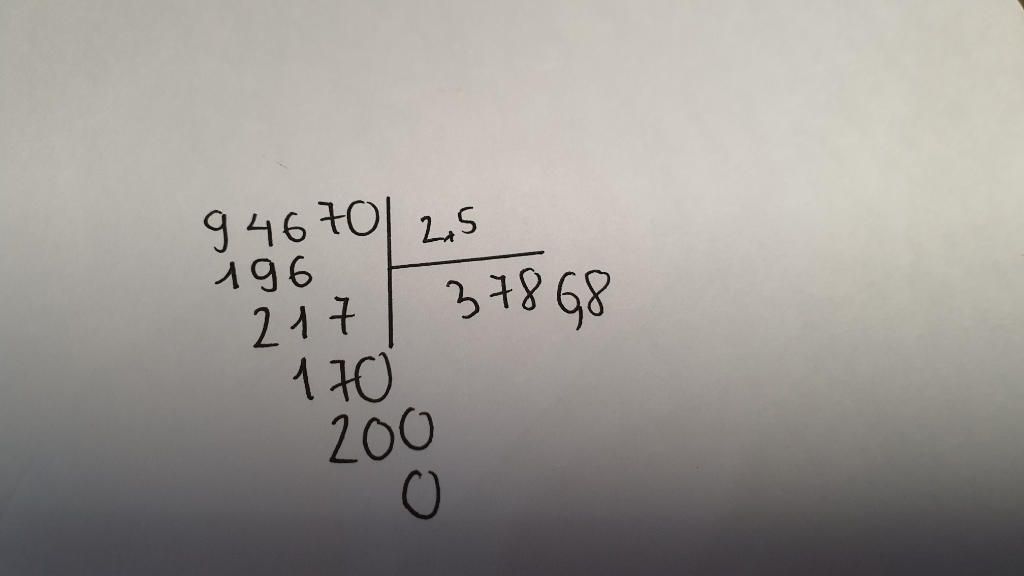 94670 2,5
196 3786,8
217
170
200
0